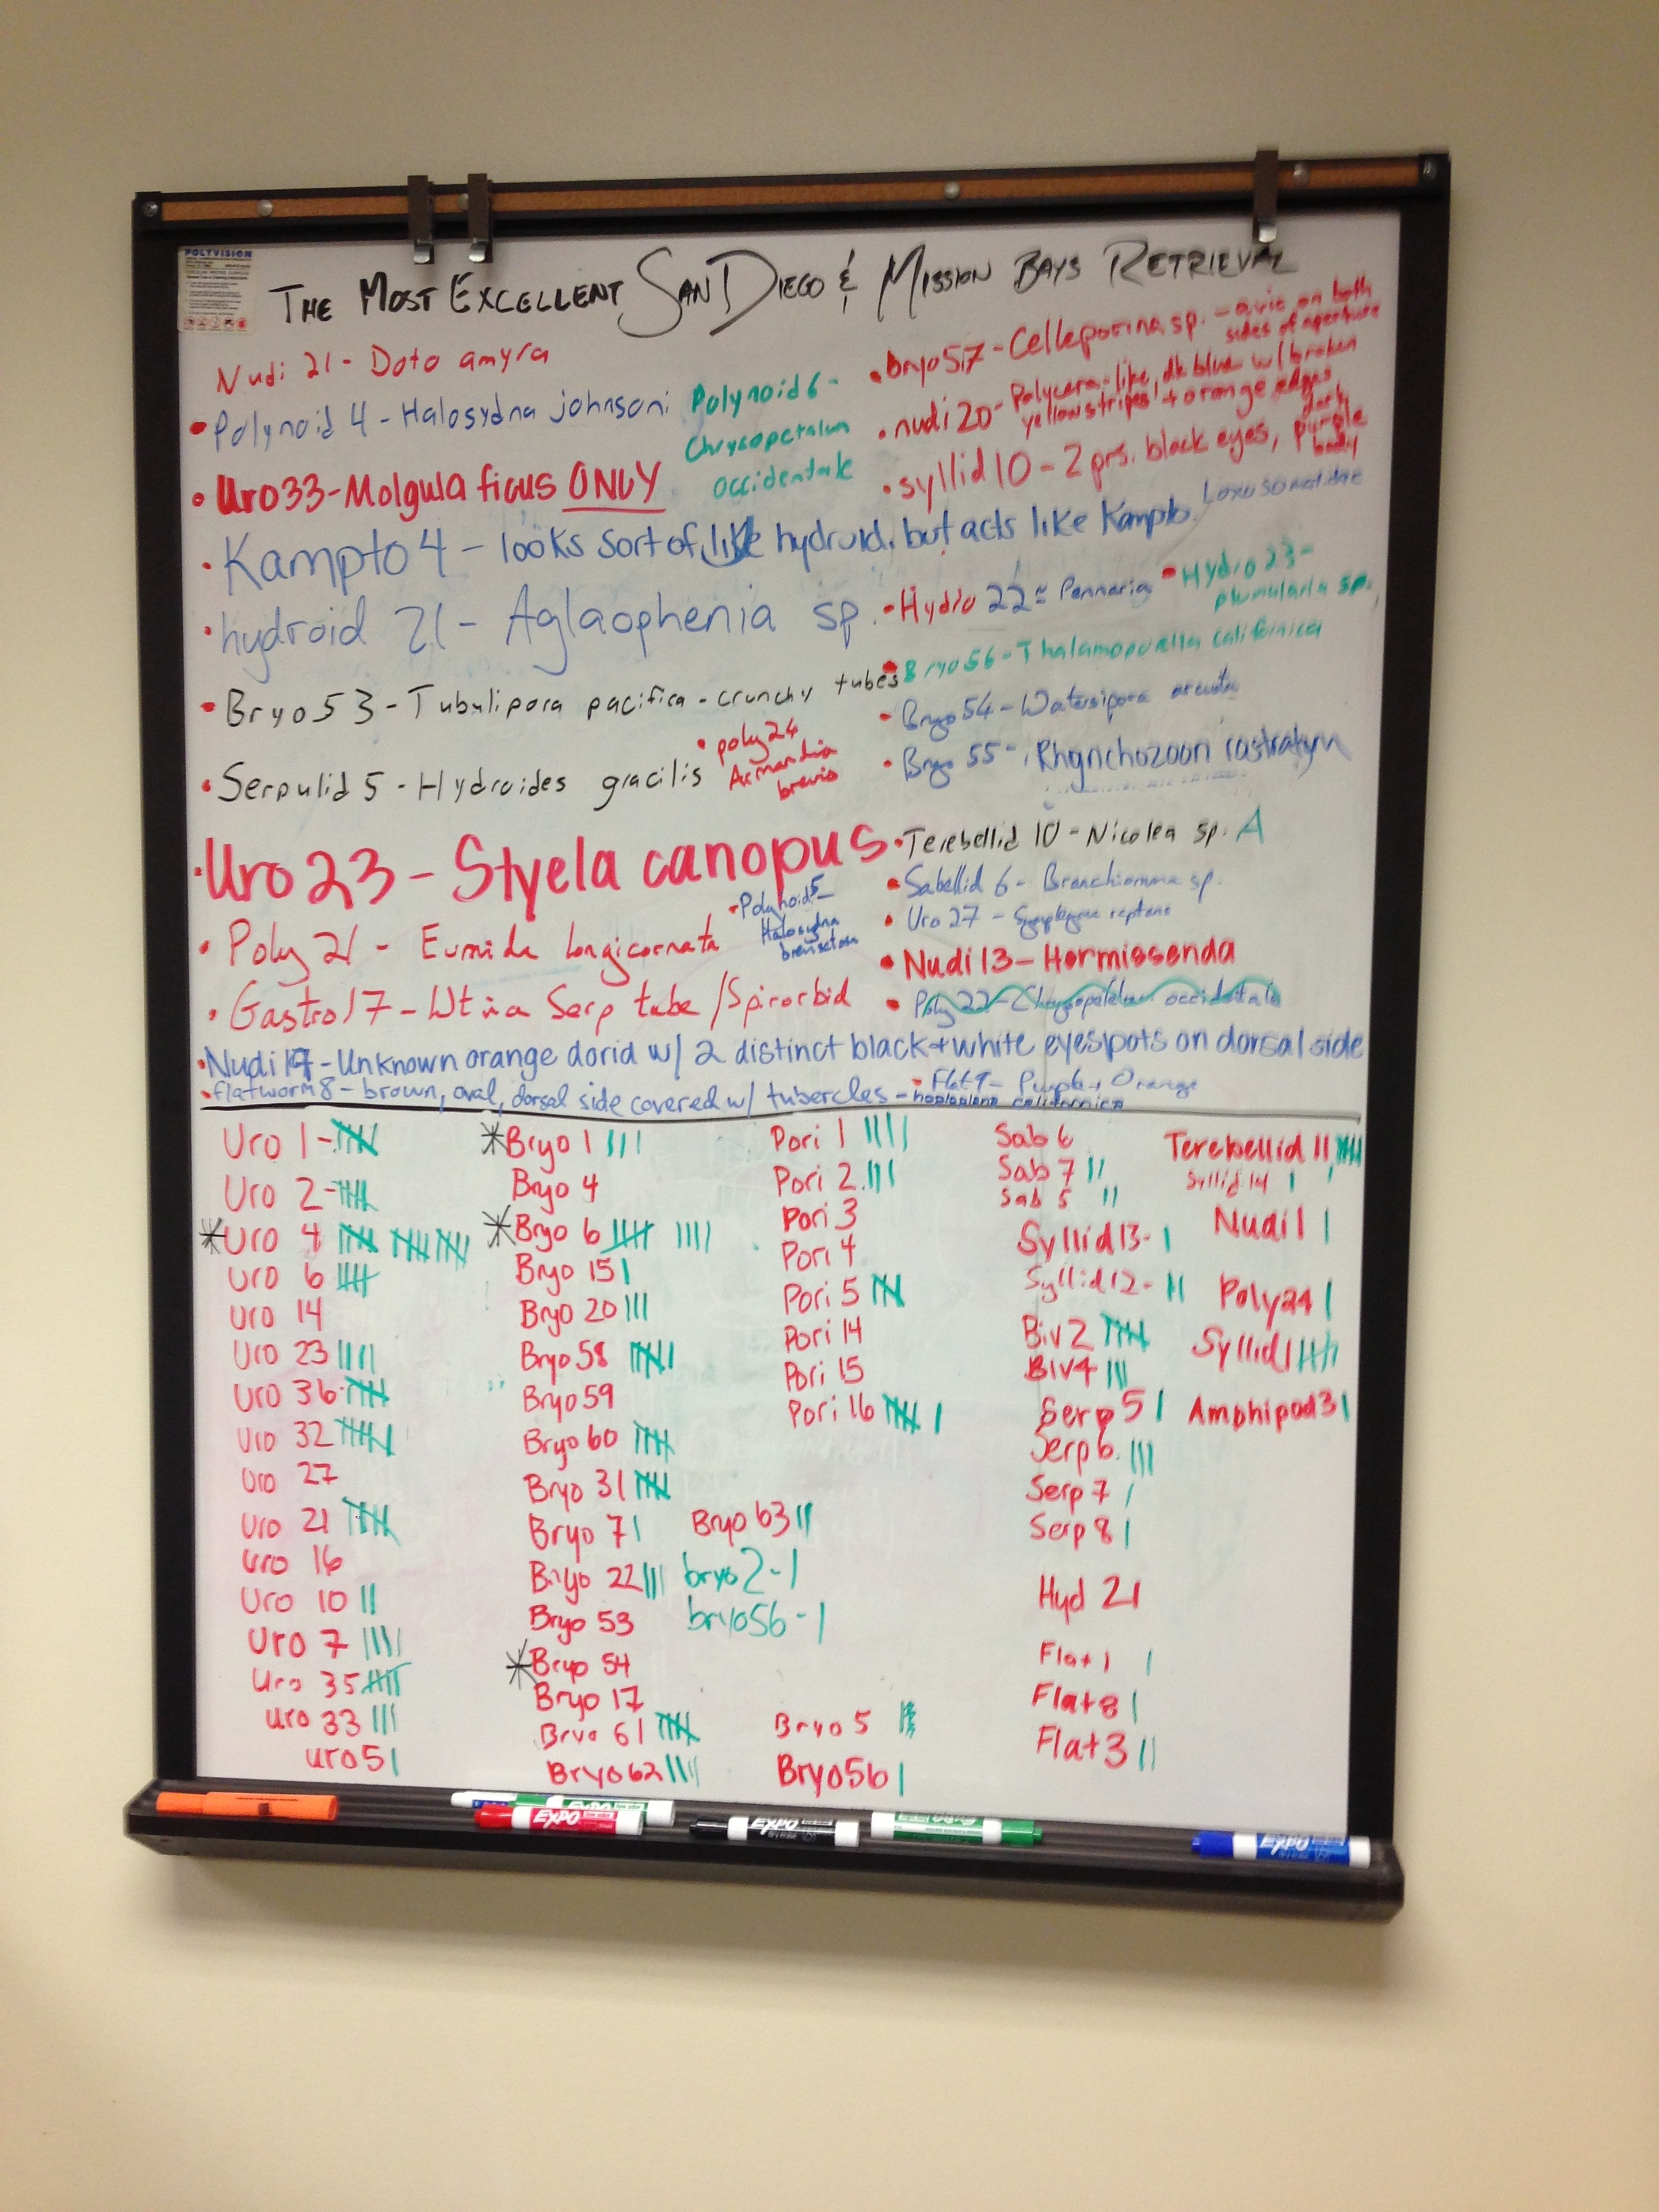 POLYVISION
THE MOST EXCELLENT SAN DIEGO & MISSION BAYS RETRIEVAL
Nudi 21 - Doto amyra
• Polynoid 4 - Halosydna johnsoni
Polynoid 6 -
Chrysopetalum
occidentale
• Uro33-Molgula ficus ONLY
• bryo57-Celleporina sp. - avic on both
sides of aperture
• nudi 20- Polycera-like, dk blue w/ broken
yellow stripes + orange edges
• syllid 10 - 2 prs. black eyes, dark
purple
body
• Kampto4 - looks sort of like hydroid, but acts like Kampto.
• hydroid 21 - Aglaophenia sp.
• Hydro 22 = Pennaria
• Hydro 23 -
plumularia sp.
• Bryo53-Tubulipora pacifica-crunchy tubes
• Bryo56-Thalamoporella californica
• Bryo 54-Watersipora arcuata
• Bryo 55- Rhynchozoon rostratum
• Serpulid 5 - Hydroides gracilis
• poly24
Armandia
brevis
• Uro23 - Styela canopus
• Terebellid 10 - Nicolea sp. A
• Sabellid 6 - Branchiomma sp.
• Uro 27 - reptans
• Poly 21 - Eumida longicornata
• Polynoid5-
Halosydna
brevisetosa
• Nudi13-Hermissenda
• Gastro17 - Wt in a Serp tube/Spirorbid
• Poly 22-Chrysopetalum occidentale
• Nudi 19-Unknown orange dorid w/ 2 distinct black+white eyespots on dorsal side
• flatworm8 - brown, oval, dorsal side covered w/ tubercles
- Flat9- Purple + Orange
californica
Uro 1 -
Uro 2 -
*Uro 4
Uro 6
Uro 14
Uro 23 ||||
Uro 36
Uro 32
Uro 27
Uro 21
Uro 16
Uro 10 ||
Uro 7 ||||
Uro 35
Uro 33 |||
Uro5 |
*Bryo 1 |||
Bryo 4
*Bryo 6 ||||
Bryo 15 |
Bryo 20 |||
Bryo 58
Bryo 59
Bryo 60
Bryo 31
Bryo 7 |
Bryo 22 |||
Bryo 53
*Bryo 54
Bryo 17
Bryo 61
Bryo 62 ||||
Bryo 63 ||
bryo 2-1
bryo56-1
Bryo 5
Bryo56 |
Pori 1 ||||
Pori 2 |||
Pori 3
Pori 4
Pori 5
Pori 14
Pori 15
Pori 16 |
Sab 6
Sab 7 ||
Sab 5 ||
Syllid13- |
Syllid12- ||
Biv 2
Biv4 |||
Serp 5 |
Serp 6 |||
Serp 7 |
Serp 8 |
Hyd 21
Flat 1 |
Flat8 |
Flat 3 ||
Terebellid 11
Syllid 14 |
Nudi1 |
Poly24 |
Syllid1
Amphipod3 |
EXPO
EXPO
EXPO